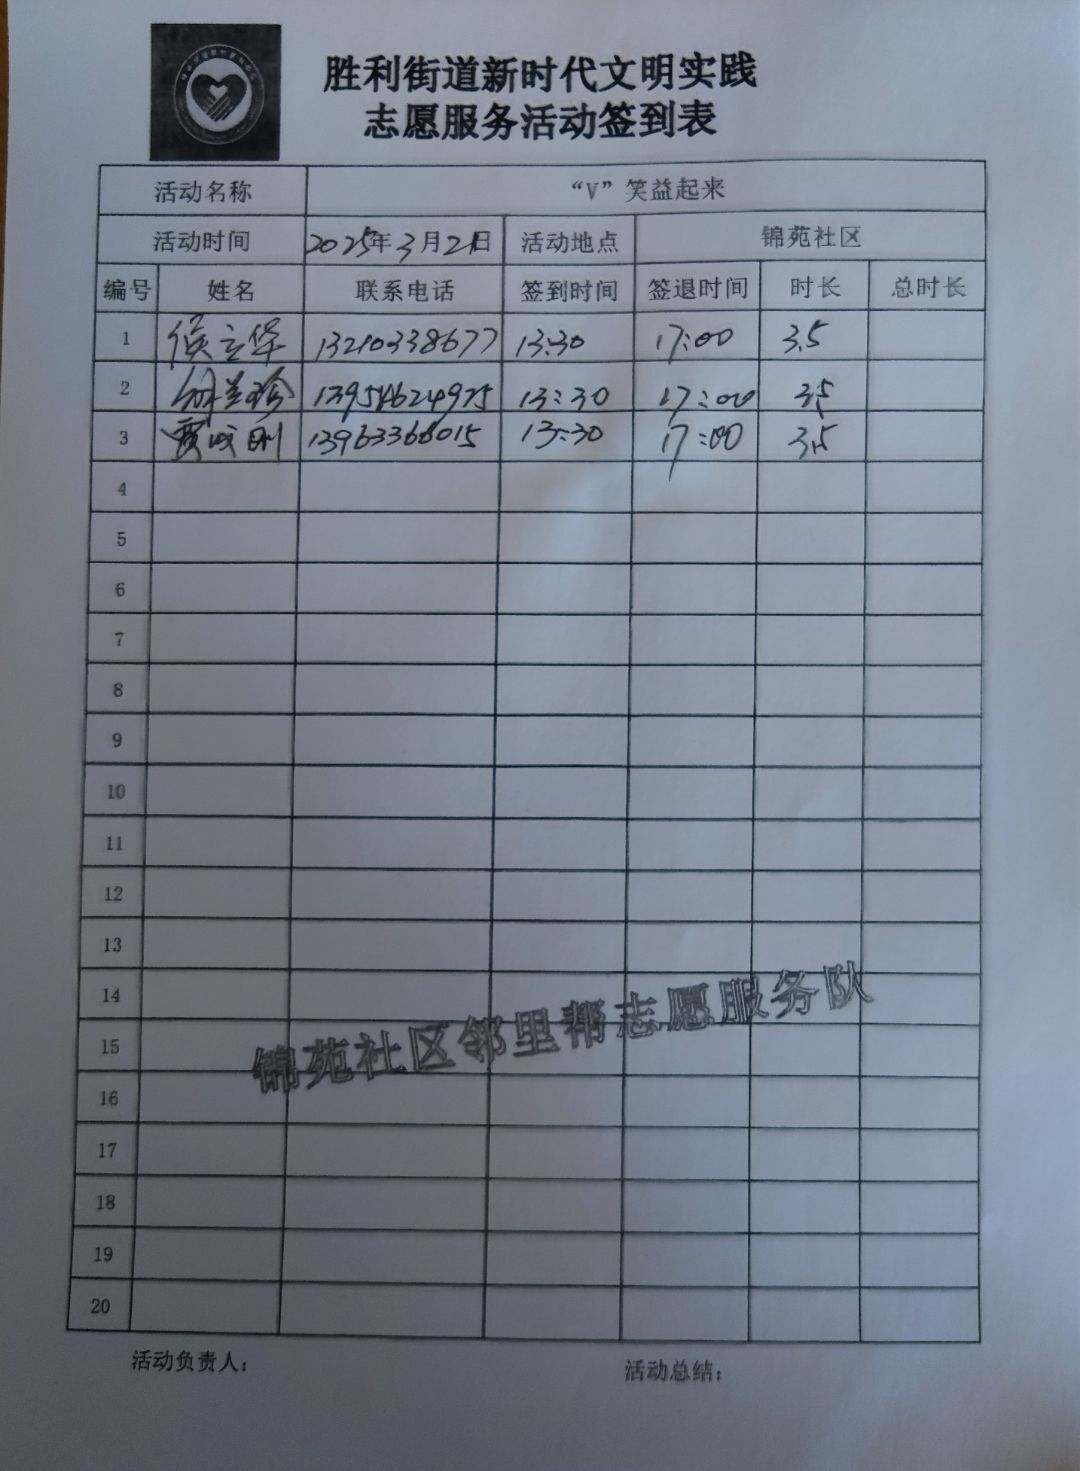 胜利街道新时代文明实践
志愿服务活动签到表
活动名称 “V”笑益起来
活动时间 2025年3月21日 活动地点 锦苑社区
编号 姓名 联系电话 签到时间 签退时间 时长 总时长
1 侯立华 13210338677 13:30 17:00 3.5
2 兰珍 13:30 17:00 3.5
3 贾成刚 13:30 17:00 3.5
4
5
6
7
8
9
10
11
12
13
14
15
16
17
18
19
20
锦苑社区邻里帮志愿服务队
活动负责人： 活动总结：